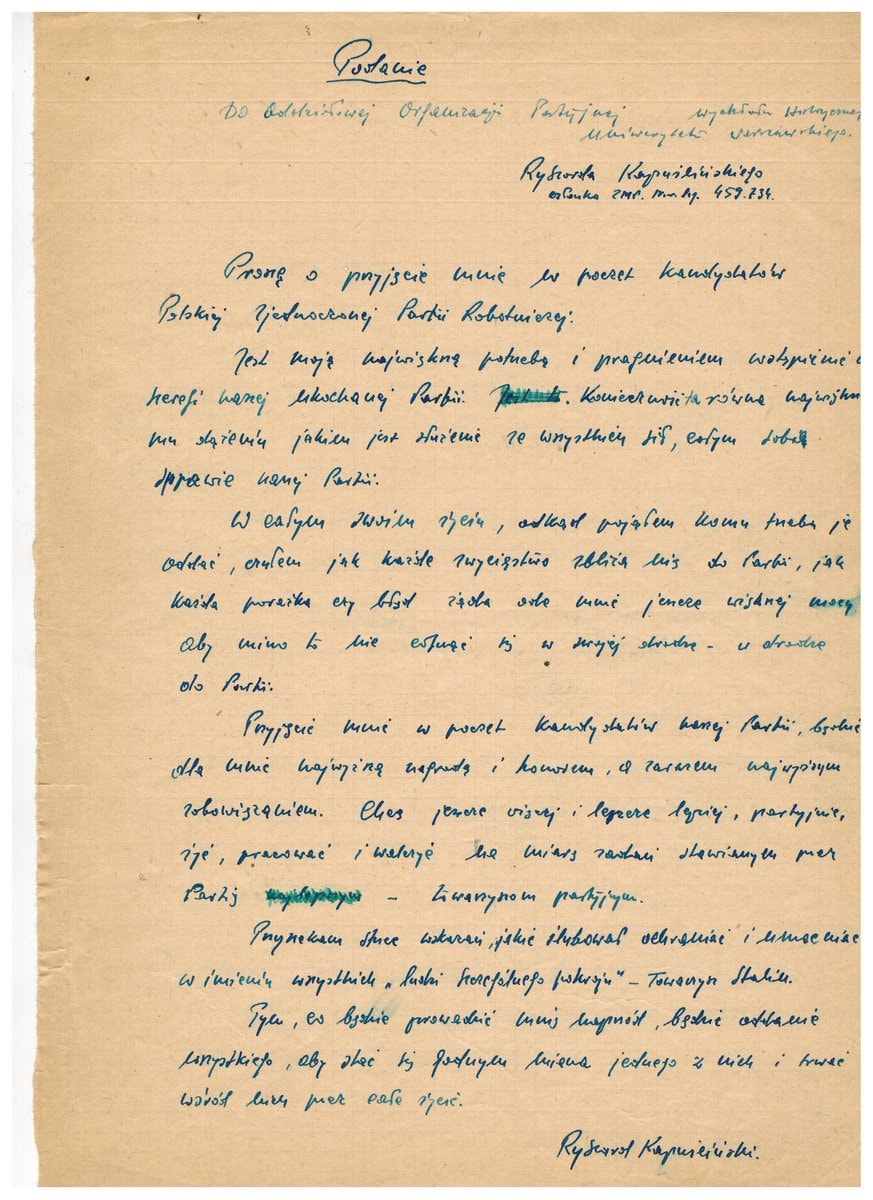 Podanie
Do Oddziałowej Organizacji Partyjnej
Uniwersytetu Warszawskiego.
Ryszarda Kapuścińskiego
członka ZMP. nr. leg. 459.734.
Proszę o przyjęcie mnie w poczet kandydatów
Polskiej Zjednoczonej Partii Robotniczej.
Jest moją największą potrzebą i pragnieniem wstąpienie w
szeregi naszej ukochanej Partii. Koniecznością równą najwyższe
mu dążeniu jakim jest służenie ze wszystkich sił, całym sobą
sprawie naszej Partii.
W całym swoim życiu, odkąd pojąłem komu trzeba je
oddać, czułem jak każde zwycięstwo zbliża mię do Partii, jak
każda porażka czy błąd żąda ode mnie jeszcze większej mocy
aby mimo to nie cofnąć się w swojej drodze – w drodze
do Partii.
Przyjęcie mnie w poczet kandydatów naszej Partii, będzie
dla mnie najwyższą nagrodą i honorem, a zarazem najwyższym
zobowiązaniem. Chcę jeszcze więcej i jeszcze lepiej, partyjnie,
żyć, pracować i walczyć na miarę zadań stawianym przez
Partię – towarzyszom partyjnym.
Przyrzekam strzec wskazań, jakie ślubował ochraniać i umacniać
w imieniu wszystkich „ludzi szczególnego pokroju" – Towarzysz Stalin.
Tym, co będzie prowadzić mnię naprzód, będzie oddanie
wszystkiego, aby stać się godnym miana jednego z nich i trwać
wśród nich przez całe życie.
Ryszard Kapuściński.